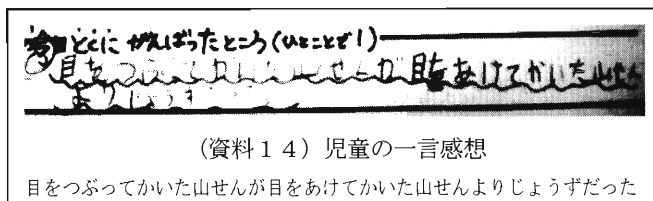 とくに がんばったところ(ひとことで!)
目をつぶってかいた山せんが目をあけてかいた山せん
よりじょうず
(資料14)児童の一言感想
目をつぶってかいた山せんが目をあけてかいた山せんよりじょうずだった